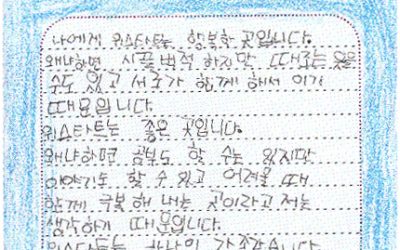 나에게 위스타트는 행복한 곳입니다.
왜냐하면 시끌법적 하지만 때로는 웃을
수도 있고 서로가 함께 해서 이기
때문입니다.
위스타트는 좋은 곳입니다.
왜냐하면 공부도 할 수는 있지만
이야기도 할 수 있고 어려울 때
함께 극복해 내는 곳이라고 저는
생각하기 때문입니다.
위스타트는 하나의 가족같습니다